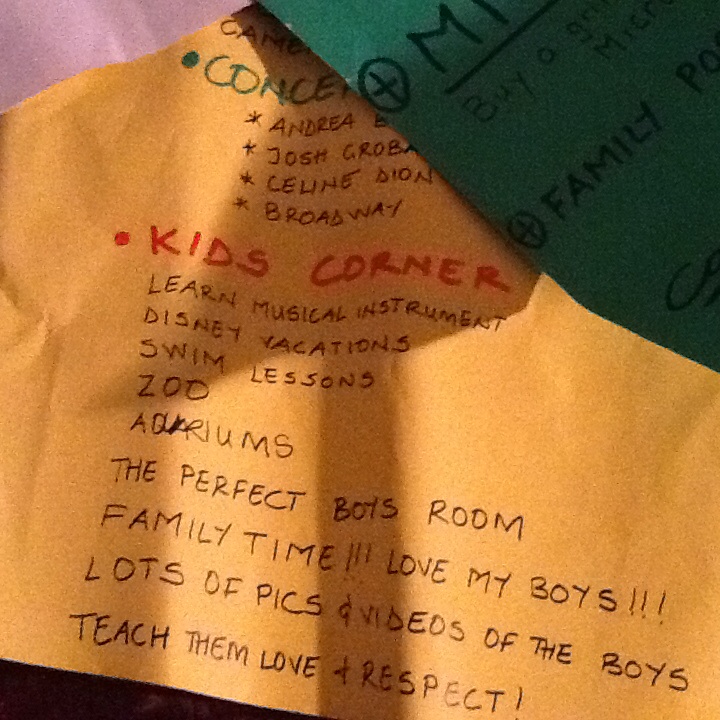 GAME
• CONCE
* ANDREA B
* JOSH GROBA
* CELINE DION
* BROADWAY
• KIDS CORNER
LEARN MUSICAL INSTRUMENT
DISNEY VACATIONS
SWIM LESSONS
ZOO
AQUARIUMS
THE PERFECT BOYS ROOM
FAMILY TIME!!! LOVE MY BOYS!!!
LOTS OF PICS & VIDEOS OF THE BOYS
TEACH THEM LOVE & RESPECT!
⊕ MI
Buy a
Micro
⊕ FAMILY PO